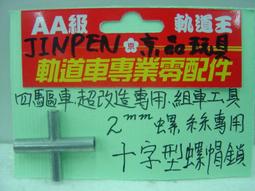 AA級
軌道王
JINPEN 京品玩具
軌道車專業零配件
四驅車.超改造專用.組車工具
2mm螺絲專用
十字型螺帽鎖